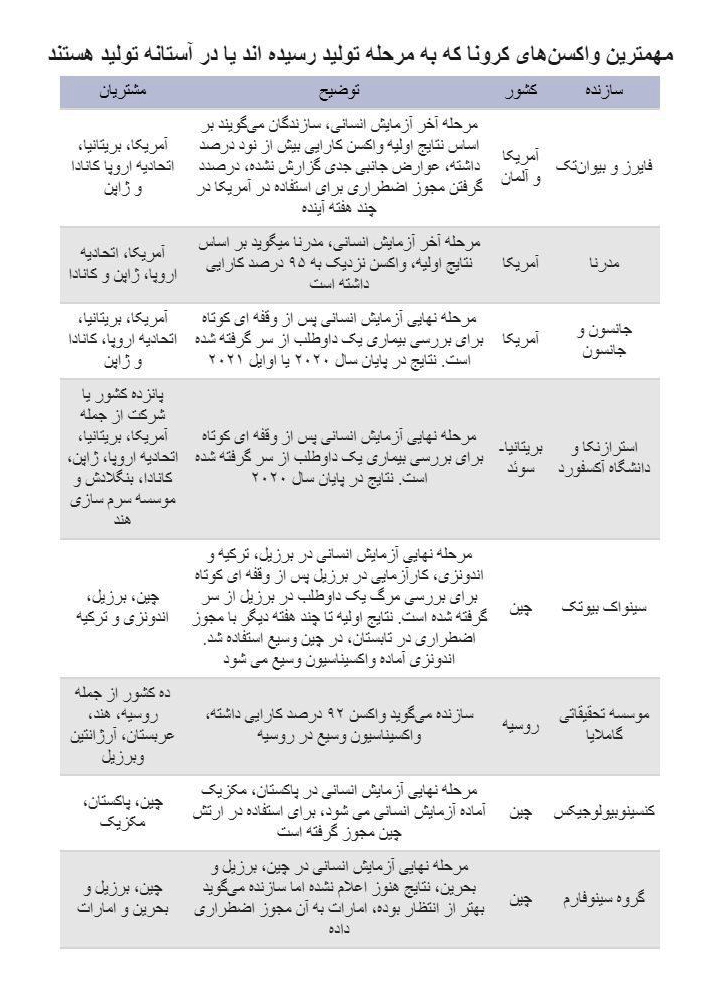 مهمترین واکسن‌های کرونا که به مرحله تولید رسیده اند یا در آستانه تولید هستند
سازنده
کشور
توضیح
مشتریان
فایرز و بیوان‌تک
آمریکا
و آلمان
مرحله آخر آزمایش انسانی، سازندگان می‌گویند بر
اساس نتایج اولیه واکسن کارایی بیش از نود درصد
داشته، عوارض جانبی جدی گزارش نشده، درصدد
گرفتن مجوز اضطراری برای استفاده در آمریکا در
چند هفته آینده
آمریکا، بریتانیا،
اتحادیه اروپا کانادا
و ژاپن
مدرنا
آمریکا
مرحله آخر آزمایش انسانی، مدرنا میگوید بر اساس
نتایج اولیه، واکسن نزدیک به ۹۵ درصد کارایی
داشته است
آمریکا، اتحادیه
اروپا، ژاپن و کانادا
جانسون و
جانسون
آمریکا
مرحله نهایی آزمایش انسانی پس از وقفه ای کوتاه
برای بررسی بیماری یک داوطلب از سر گرفته شده
است. نتایج در پایان سال ۲۰۲۰ یا اوایل ۲۰۲۱
آمریکا، بریتانیا،
اتحادیه اروپا، کانادا
و ژاپن
استرازنکا و
دانشگاه آکسفورد
بریتانیا-
سوئد
مرحله نهایی آزمایش انسانی پس از وقفه ای کوتاه
برای بررسی بیماری یک داوطلب از سر گرفته شده
است. نتایج در پایان سال ۲۰۲۰
پانزده کشور یا
شرکت از جمله
آمریکا، بریتانیا،
اتحادیه اروپا، ژاپن،
کانادا، بنگلادش و
موسسه سرم سازی
هند
سینواک بیوتک
چین
مرحله نهایی آزمایش انسانی در برزیل، ترکیه و
اندونزی، کارآزمایی در برزیل پس از وقفه ای کوتاه
برای بررسی مرگ یک داوطلب در برزیل از سر
گرفته شده است. نتایج اولیه تا چند هفته دیگر با مجوز
اضطراری در تابستان، در چین وسیع استفاده شد.
اندونزی آماده واکسیناسیون وسیع می شود
چین، برزیل،
اندونزی و ترکیه
موسسه تحقیقاتی
گامالایا
روسیه
سازنده می‌گوید واکسن ۹۲ درصد کارایی داشته،
واکسیناسیون وسیع در روسیه
ده کشور از جمله
روسیه، هند،
عربستان، آرژانتین
وبرزیل
کنسینوبیولوجیکس
چین
مرحله نهایی آزمایش انسانی در پاکستان، مکزیک
آماده آزمایش انسانی می شود، برای استفاده در ارتش
چین مجوز گرفته است
چین، پاکستان،
مکزیک
گروه سینوفارم
چین
مرحله نهایی آزمایش انسانی در چین، برزیل و
بحرین، نتایج هنوز اعلام نشده اما سازنده می‌گوید
بهتر از انتظار بوده، امارات به آن مجوز اضطراری
داده
چین، برزیل و
بحرین و امارات